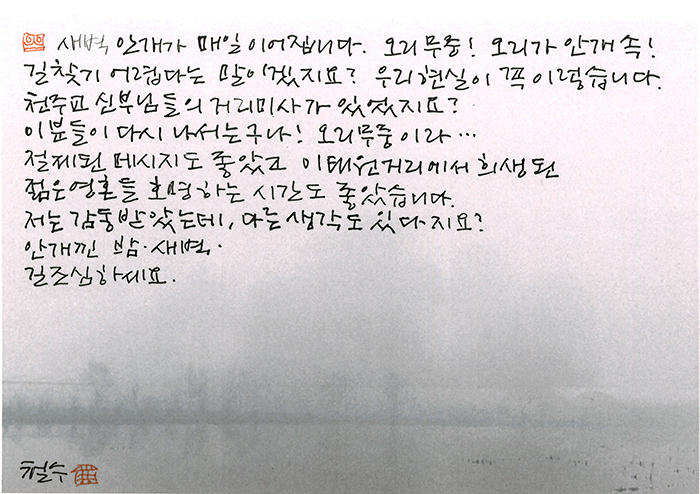 새벽 안개가 매일 이어집니다. 오리무중! 오리가 안개 속!
길찾기 어렵다는 말이겠지요? 우리현실이 꼭 이렇습니다.
천주교 신부님들의 거리미사가 있었지요?
이분들이 다시 나서는구나! 오리무중이라…
절제된 메시지도 좋았고 이태원거리에서 희생된
젊은영혼들 호명하는 시간도 좋았습니다.
저는 감동받았는데, 다른 생각도 있다지요?
안개낀 밤·새벽·
길조심하세요.
철수